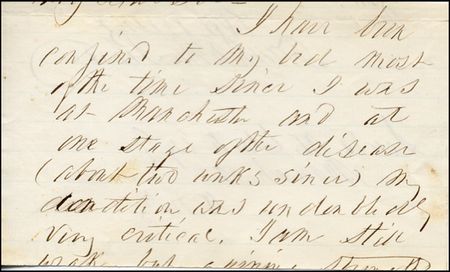 My dear Sir
I have been
confined to my bed most
of the time since I was
at Manchester and at
one stage of the disease
(about two weeks since) my
condition was undoubtedly
very critical. I am still
weak, but gaining strength